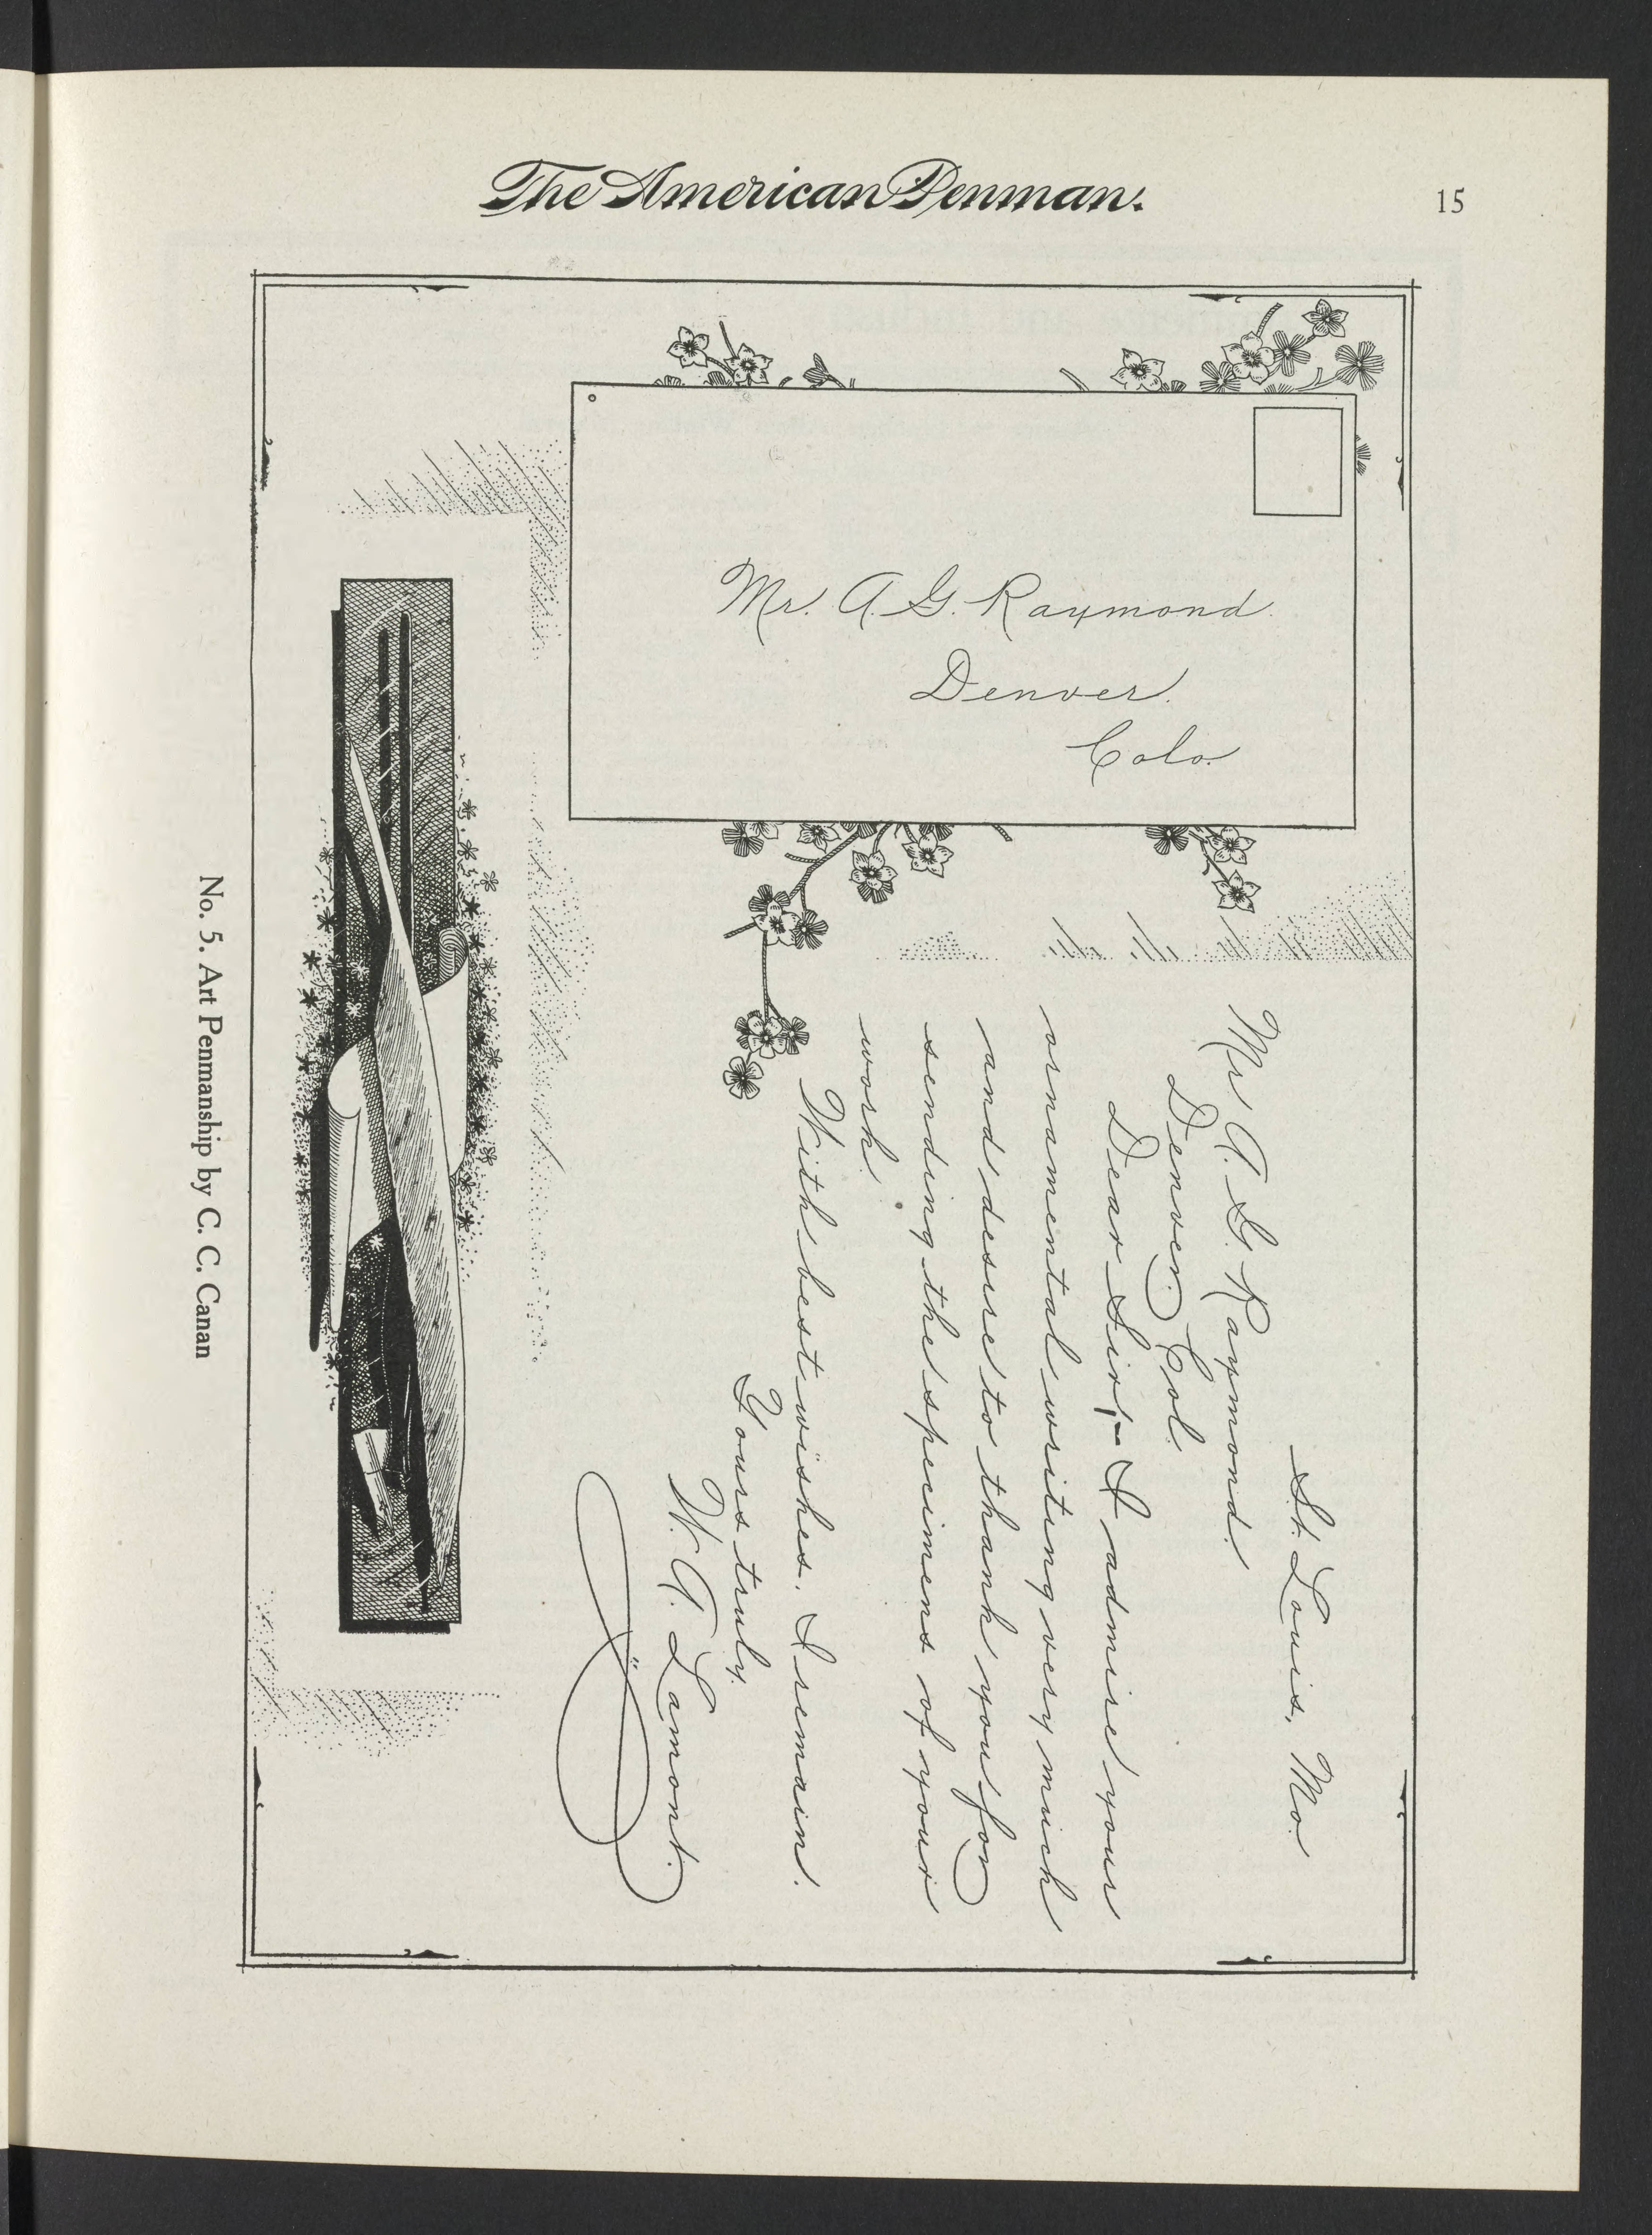 The American Penman.
15
Mr. A. G. Raymond.
Denver.
Colo.
St. Louis, Mo.
Mr. A. G. Raymond.
Denver. Col.
Dear Sir;- I admire your
ornamental writing very much
and desire to thank you for
sending the specimens of your
work.
With best wishes. I remain.
Yours truly.
W. A. Lamont.
No. 5. Art Penmanship by C. C. Canan